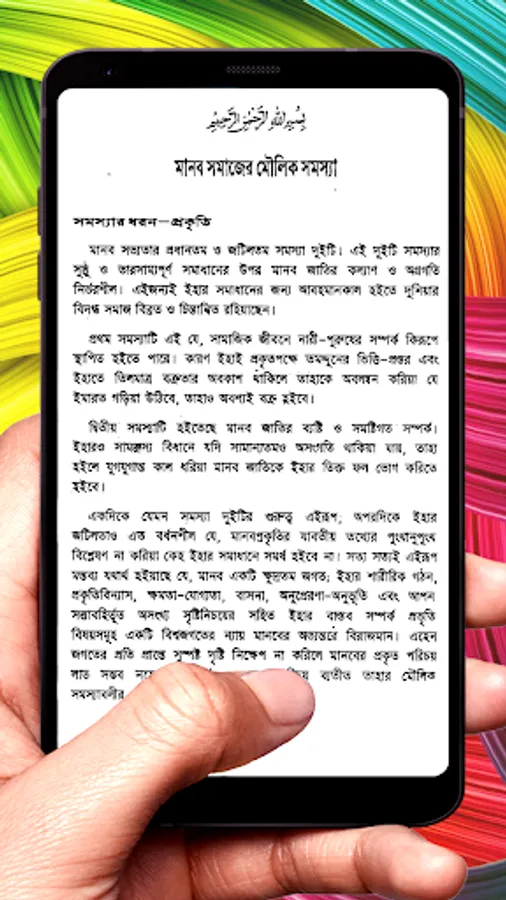 بسم الله الرحمن الرحيم
মানব সমাজের মৌলিক সমস্যা
সমস্যার ধরন—প্রকৃতি
মানব সভ্যতার প্রধানতম ও জটিলতম সমস্যা দুইটি। এই দুইটি সমস্যার
সুষ্ঠু ও ভারসাম্যপূর্ণ সমাধানের উপর মানব জাতির কল্যাণ ও অগ্রগতি
নির্ভরশীল। এইজন্যই ইহার সমাধানের জন্য আবহমানকাল হইতে দুনিয়ার
বিদগ্ধ সমাজ বিব্রত ও চিন্তান্বিত রহিয়াছেন।
প্রথম সমস্যাটি এই যে, সামাজিক জীবনে নারী-পুরুষের সম্পর্ক কিরূপে
স্থাপিত হইতে পারে। কারণ ইহাই প্রকৃতপক্ষে তমদ্দুনের ভিত্তি-প্রস্তর এবং
ইহাতে তিলমাত্র বক্রতার অবকাশ থাকিলে তাহাকে অবলম্বন করিয়া যে
ইমারত গড়িয়া উঠিবে, তাহাও অবশ্যই বক্র হইবে।
দ্বিতীয় সমস্যাটি হইতেছে মানব জাতির ব্যষ্টি ও সমষ্টিগত সম্পর্ক।
ইহারও সামঞ্জস্য বিধানে যদি সামান্যতমও অসংগতি থাকিয়া যায়, তাহা
হইলে যুগযুগান্ত কাল ধরিয়া মানব জাতিকে ইহার তিক্ত ফল ভোগ করিতে
হইবে।
একদিকে যেমন সমস্যা দুইটির গুরুত্ব এইরূপ; অপরদিকে ইহার
জটিলতাও এত বর্ধনশীল যে, মানবপ্রকৃতির যাবতীয় তথ্যের পুংখানুপুংখ
বিশ্লেষণ না করিয়া কেহ ইহার সমাধানে সমর্থ হইবে না। সত্য সত্যই এইরূপ
মন্তব্য যথার্থ হইয়াছে যে, মানব একটি ক্ষুদ্রতম জগত; ইহার শারীরিক গঠন,
প্রকৃতিবিন্যাস, ক্ষমতা-যোগ্যতা, বাসনা, অনুপ্রেরণা-অনুভূতি এবং আপন
সত্তাবহির্ভূত অসংখ্য সৃষ্টিনিচয়ের সহিত ইহার বাস্তব সম্পর্ক প্রভৃতি
বিষয়সমূহ একটি বিশ্বজগতের ন্যায় মানবের অভ্যন্তরে বিরাজমান। এহেন
জগতের প্রতি প্রান্তে সুস্পষ্ট দৃষ্টি নিক্ষেপ না করিলে মানবের প্রকৃত পরিচয়
লাভ সম্ভব ব্যতীত তাহার মৌলিক
সমস্যাবলীর